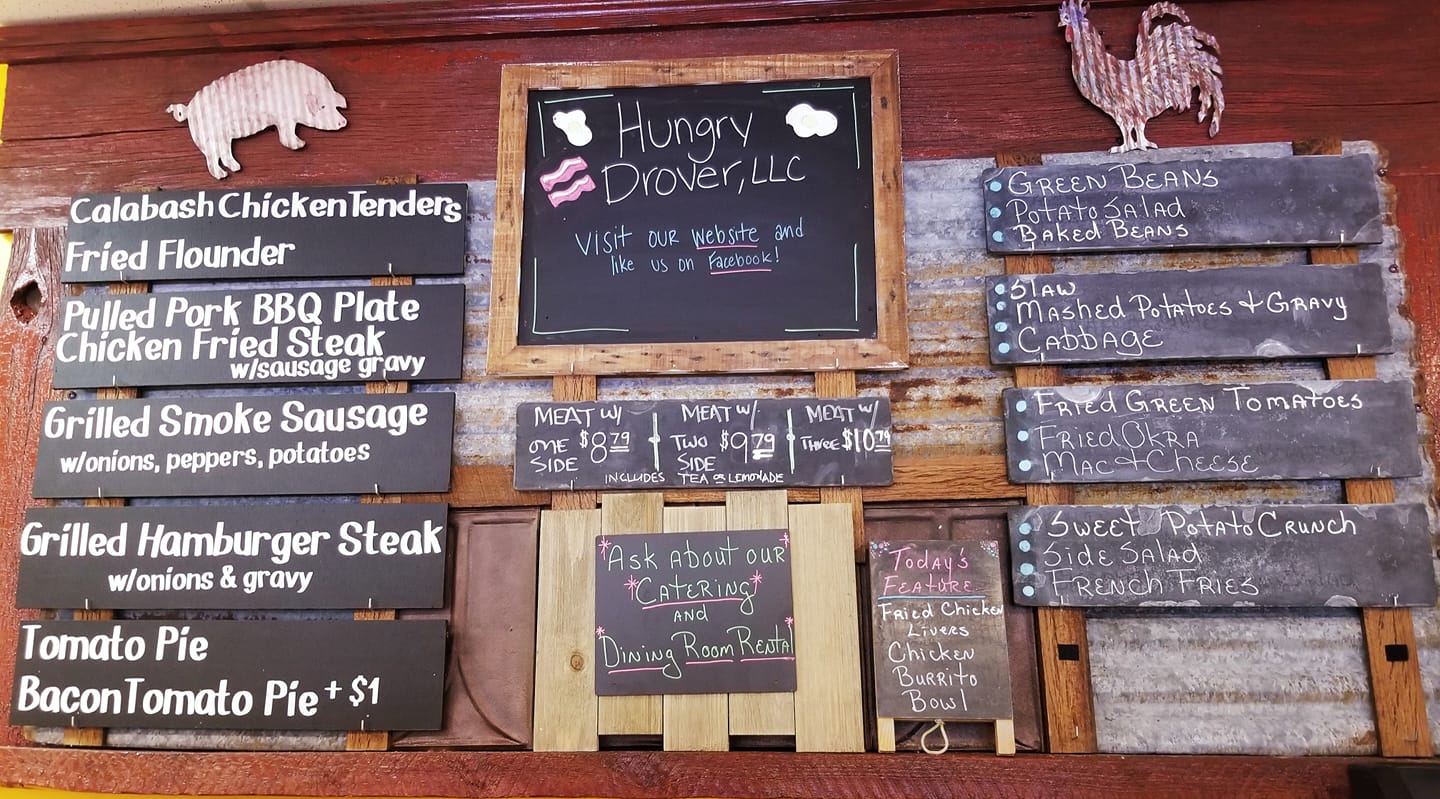 Calabash Chicken Tenders
Fried Flounder
Pulled Pork BBQ Plate
Chicken Fried Steak
w/sausage gravy
Grilled Smoke Sausage
w/onions, peppers, potatoes
Grilled Hamburger Steak
w/onions & gravy
Tomato Pie
Bacon Tomato Pie + $1
Hungry
Drover, LLC
Visit our website and
like us on Facebook!
MEAT W/
ONE SIDE $8.79
MEAT W/
TWO SIDE $9.79
MEAT W/
THREE $10.79
INCLUDES TEA OR LEMONADE
Ask about our
Catering
and
Dining Room Rental
Today's
Feature
Fried Chicken
Livers
Chicken
Burrito
Bowl
GREEN BEANS
POTATO SALAD
BAKED BEANS
SLAW
MASHED POTATOES + GRAVY
CABBAGE
FRIED GREEN TOMATOES
FRIED OKRA
MAC + CHEESE
SWEET POTATO CRUNCH
SIDE SALAD
FRENCH FRIES